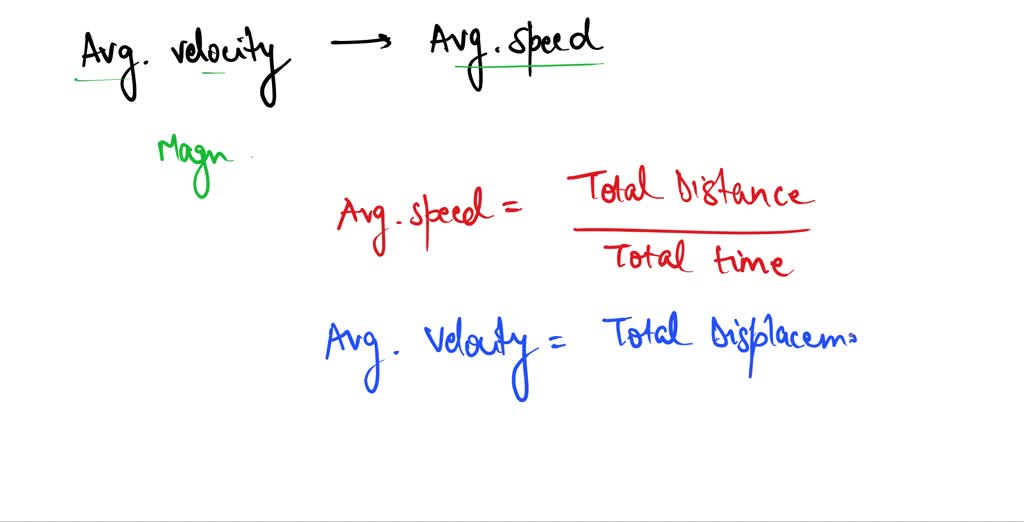 Avg. velocity → Avg. speed
Magn
Avg. speed = Total Distance
Total time
Avg. Velocity = Total Displacem